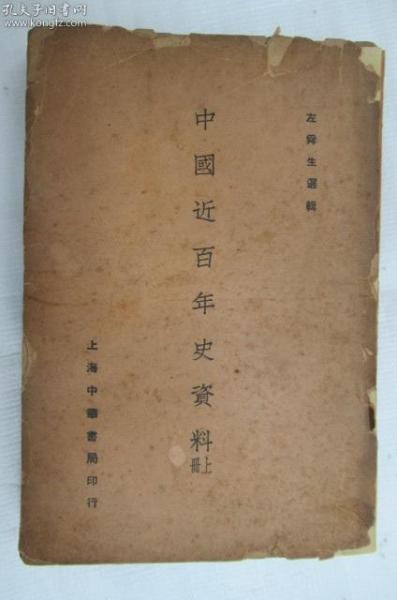 孔夫子旧书网
www.kongfz.com
左舜生選輯
中國近百年史資料上冊
上海中華書局印行